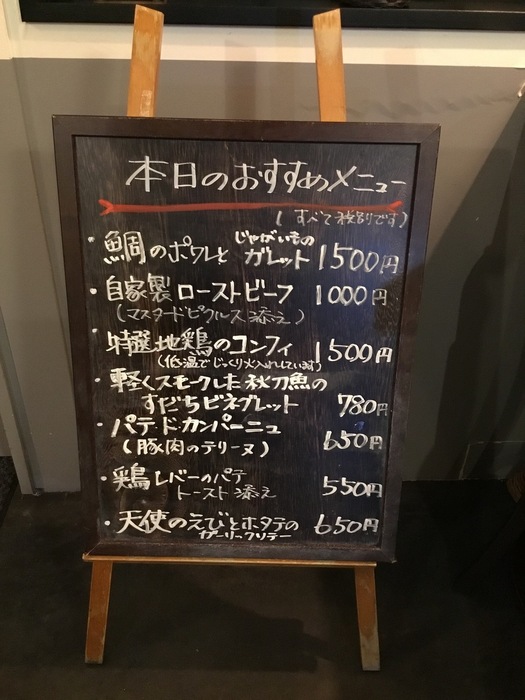 本日のおすすめメニュー
(すべて税別です)
・鯛のポワレと じゃがいもの ガレット 1500円
・自家製ローストビーフ 1000円
(マスタードピクルス添え)
・特選地鶏のコンフィ 1500円
(低温でじっくり火入れしています)
・軽くスモークした秋刀魚の
すだちビネグレット 780円
・パテ・ド・カンパーニュ
(豚肉のテリーヌ) 650円
・鶏レバーのパテ
トースト添え 550円
・天使のえびとホタテの 650円
ガーリックソテー